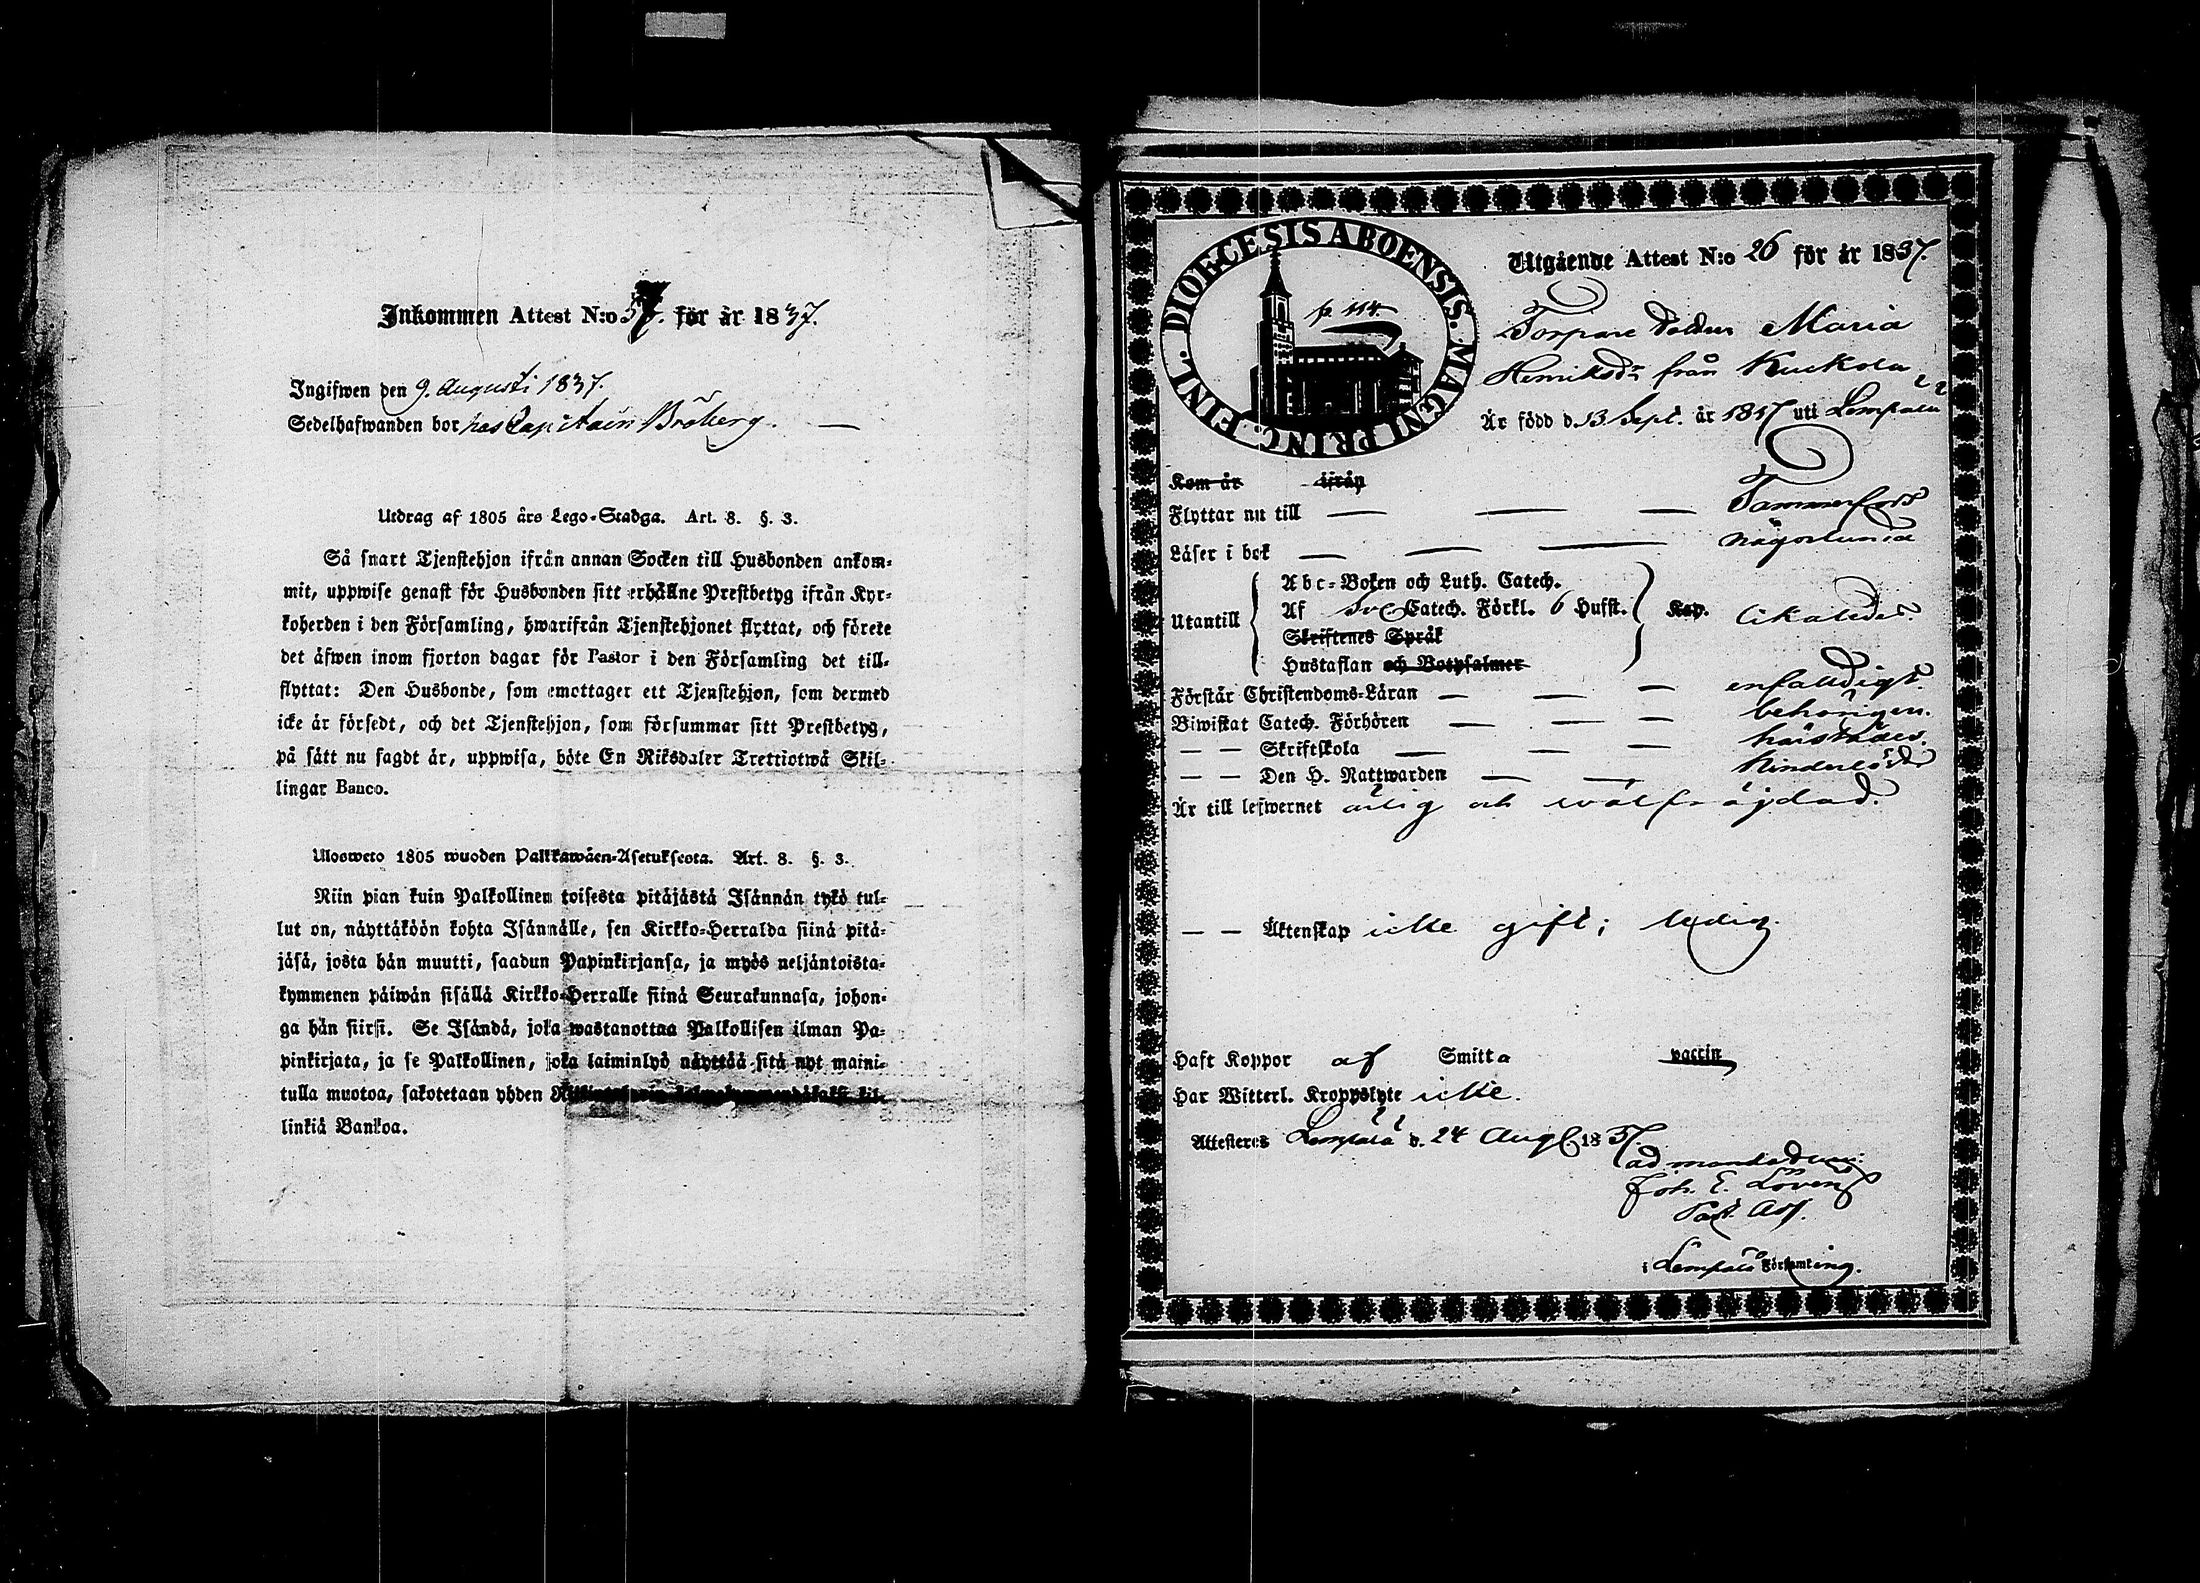 Inkommen Attest N:o 57. för år 1837.
Ingifwen den 9. Augusti 1837.
Sedelhafwanden bor hos Capitain Broberg.
Utdrag af 1805 års Lego-Stadga. Art. 8. §. 3.
Så snart Tjenstehjon ifrån annan Socken till Husbonden ankom-
mit, uppwise genast för Husbonden sitt erhållne Prestbetyg ifrån Kyr-
koherden i den Församling, hwarifrån Tjenstehjonet flyttat, och förete
det äfwen inom fjorton dagar för Pastor i den Församling det till-
flyttat: Den Husbonde, som emottager ett Tjenstehjon, som dermed
icke är försedt, och det Tjenstehjon, som försummar sitt Prestbetyg,
på sätt nu sagdt är, uppwisa, böte En Riksdaler Trettiotwå Skil-
lingar Banco.
Ulosweto 1805 wuoden Palkkawäen-Asetuksesta. Art. 8. §. 3.
Niin pian kuin Palkollinen toisesta pitäjästä Isännän tykö tul-
lut on, näyttäköön kohta Isännälle, sen Kirkko-Herralda siinä pitä-
jäsä, josta hän muutti, saadun Papinkirjansa, ja myös neljäntoista-
kymmenen päiwän sisällä Kirkko-Herralle siinä Seurakunnasa, johon-
ga hän siirsi. Se Isändä, joka wastanottaa Palkollisen ilman Pa-
pinkirjata, ja se Palkollinen, joka laiminlyö näyttää sitä nyt maini-
tulla muotoa, sakotetaan yhden kil-
linkiä Bankoa.
DIOECESIS ABOENSIS. MAGNI PRINC. FINL.
p. 114.
Utgående Attest N:o 26 för år 1837.
Torpare Dottren Maria
Henriksdr från Kuckola
Är född d. 13 Sept. år 1817 uti Lempälä
Kom år ifrån
Flyttar nu till — — — Tammerfors
Läser i bok — — — någorlunda
Abc-Boken och Luth. Catech.
Utantill Af Sv Catech. Förkl. 6 Hufst. Kap. likaledes.
Skriftenes Språk
Hustaflan och Botpsalmer
Förstår Christendoms-Läran — — — enfaldigt.
Biwistat Catech. Förhören — — — behörigen.
— — Skriftskola — — — härstädes.
— — Den H. Nattwarden — — hinderlös
Är till lefwernet ärlig och wälfräjdad.
— — Äktenskap icke gift; ledig.
Haft Koppor af Smitta vaccin
Har Witterl. Kroppslyte icke.
Attesteres Lempälä d. 24 Aug 1837.
ad mandatum:
Joh. E. Lovén
Past. Adj.
i Lempälä Församling.